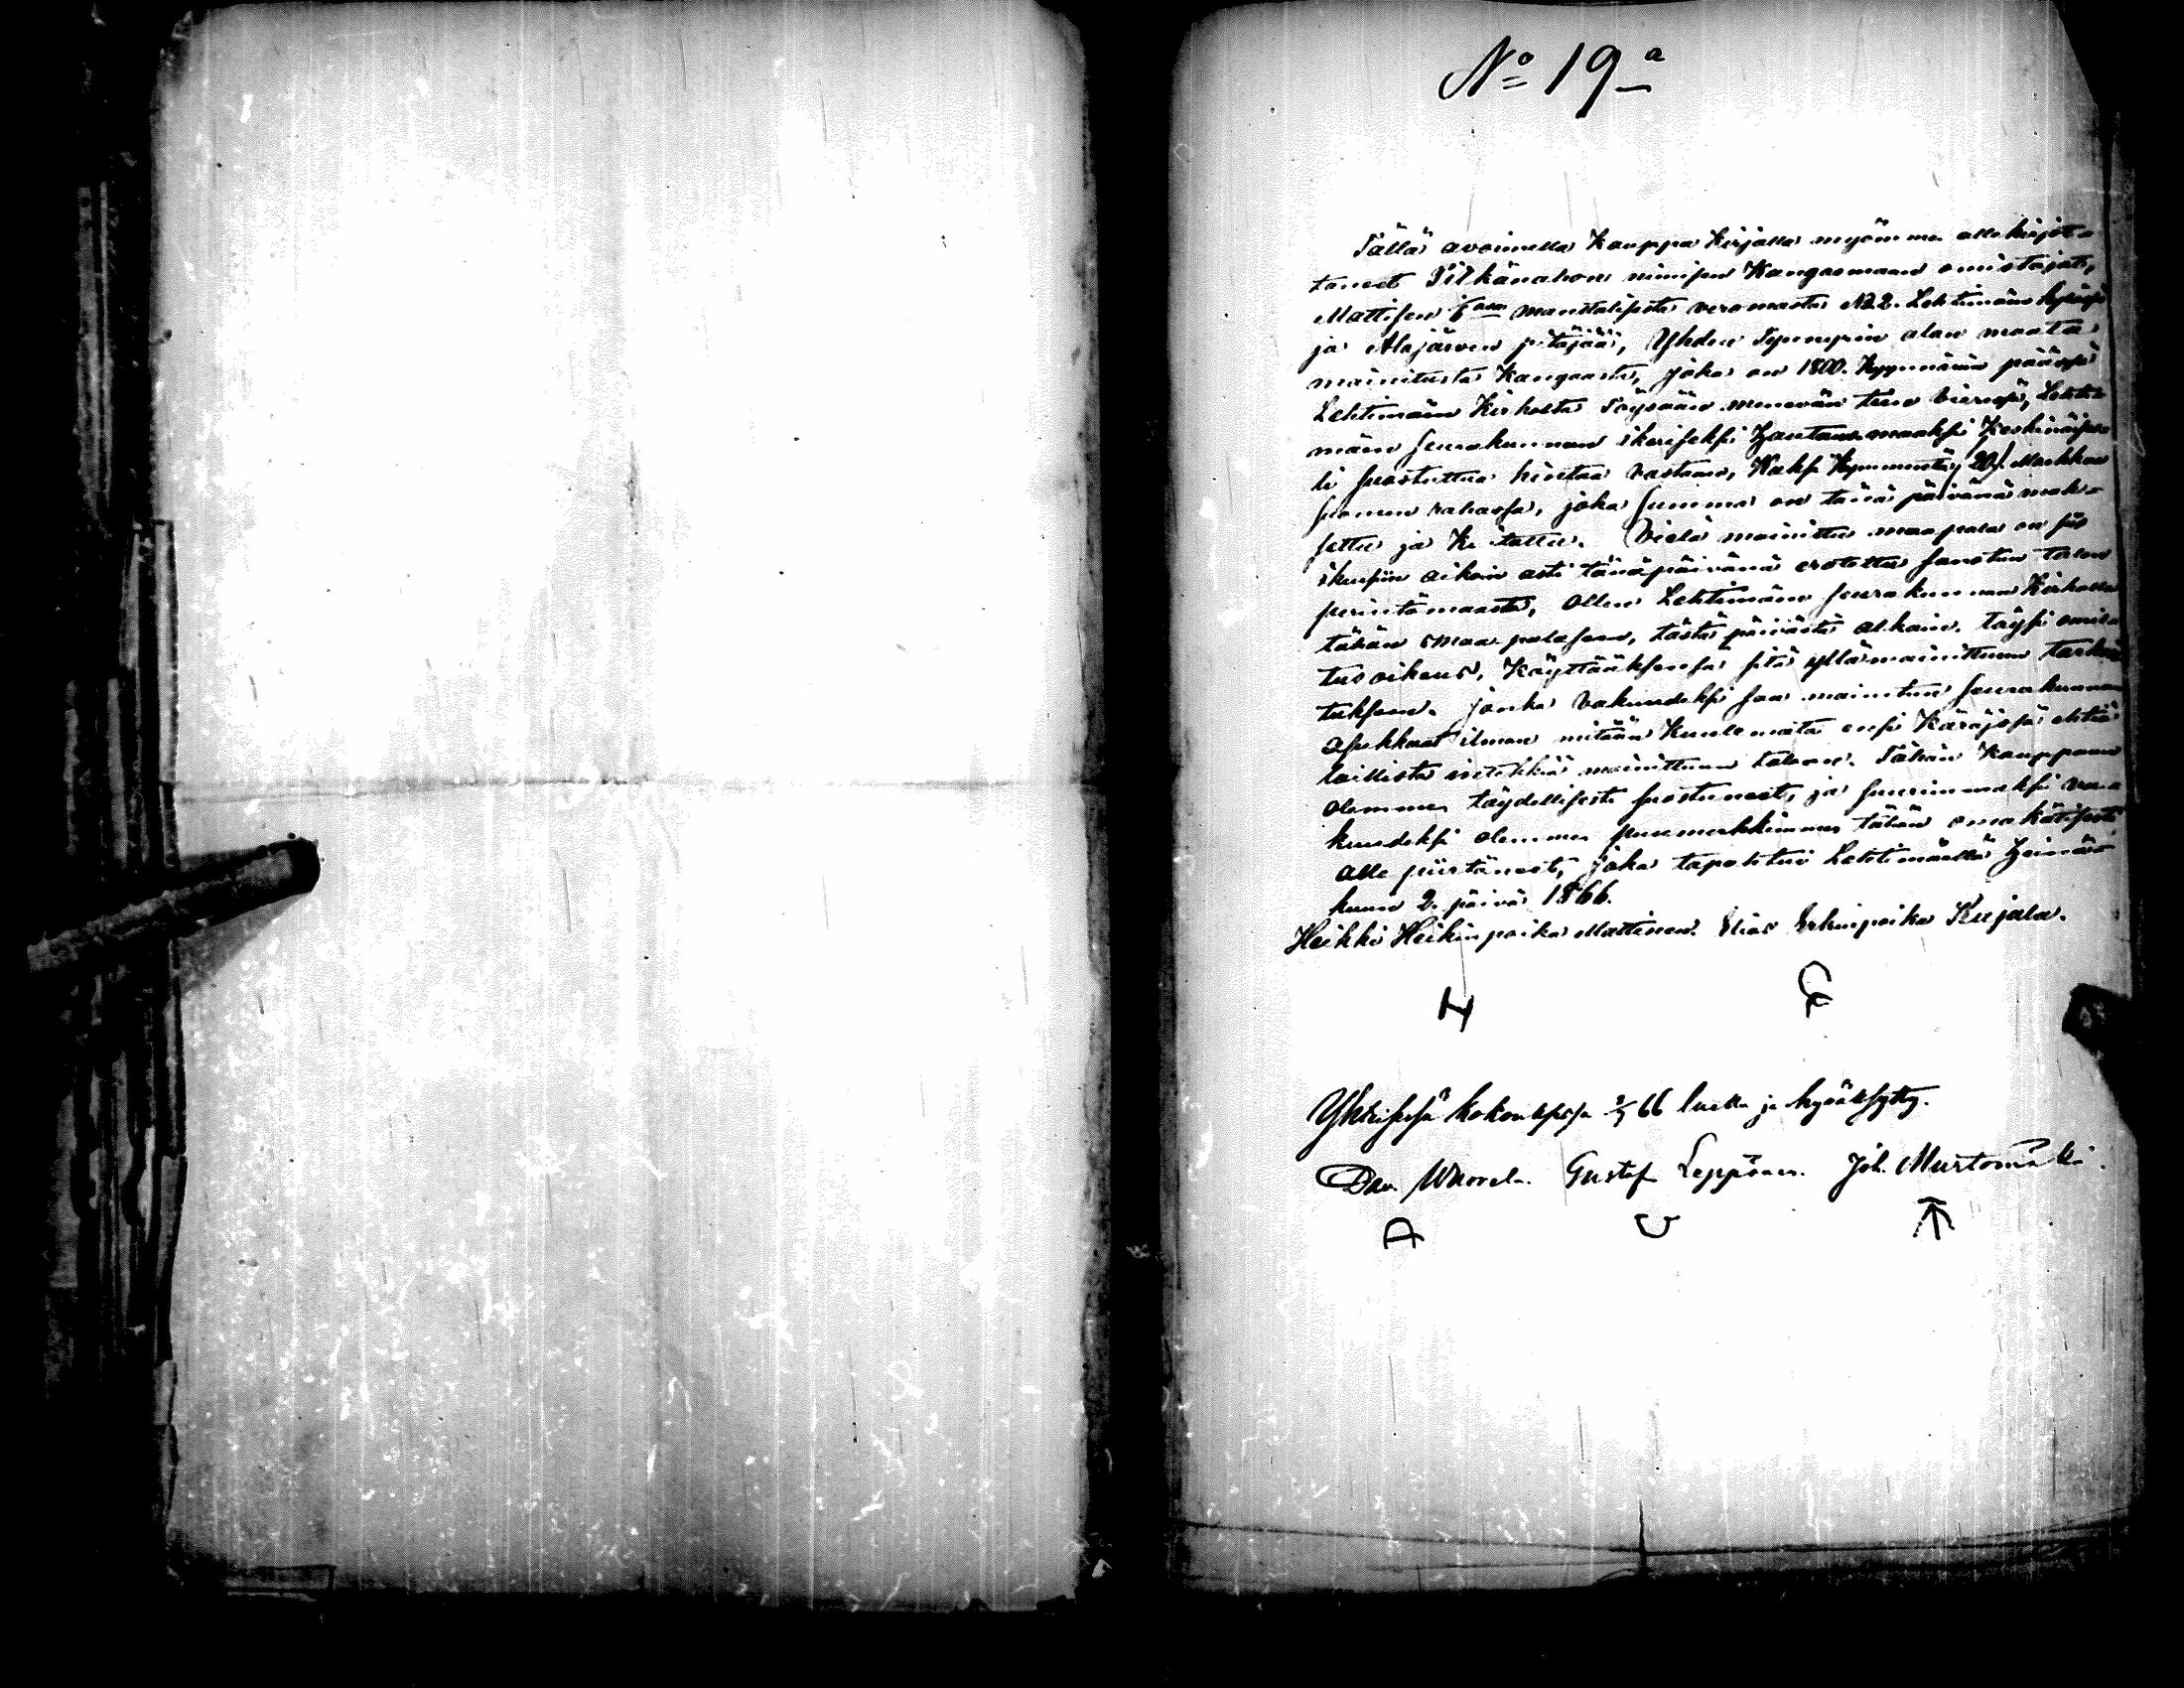 No 19a
Tällä avoimella Kauppa Kirjalla myömme alle kirjot-
taneet Pitkänahon nimisen Kangasmaan omistajat,
Mattisen manttalisesta veromaasta No 2. Lehtimäen kyläsä
ja Alajärven pitäjää, Yhden Tynnyrin alan maata
mainitusta Kangaasta, joka on 1800. Kyynärän pääsä
Lehtimäen Kirkolta Töysään menevän tien vieresä, Lehti-
mäen seurakunnan ikuiseksi Hautausmaaksi Keskinäises-
ti suostuttua hintaa vastaan, Kaksi Kymmentä 20/. Markkaa
suomen rahassa, joka summa on tänä päivänä mak-
settu ja Kuitattu. Vielä mainittu maapala on siis
ikuisiin aikoin asti tänäpäivänä erotettu sanotun talon
perintömaasta, Ollen Lehtimäen seurakunnan Kirkolla
tähän maa palasen, tästä päivästä alkain, täysi omis-
tus oikeus, Käyttääksensä sitä yllämainittuun tarkoi-
tukseen. jonka vakuudeksi saa mainitun seurakunnan
asukkaat ilman mitään Kuulematta ensi Käräjisä ehtiä
laillista mainittuun taloon. Tähän Kauppaan
olemme täydellisesti suostuneet, ja suurimmaksi va-
kuudeksi olemme puumerkkimme tähän omakätisesti
alle piirtäneet, joka tapahtui Lehtimäellä Heinä-
kuun 2. päivä 1866.
Heikki Heikinpoika Mattinen. Elias Erkinpoika Kujala.
H
Yhteisesä kokouksesa 66 luettu ja hyväksytty.
Dav. Gustaf Leppänen. Joh. Murtomäki.
A